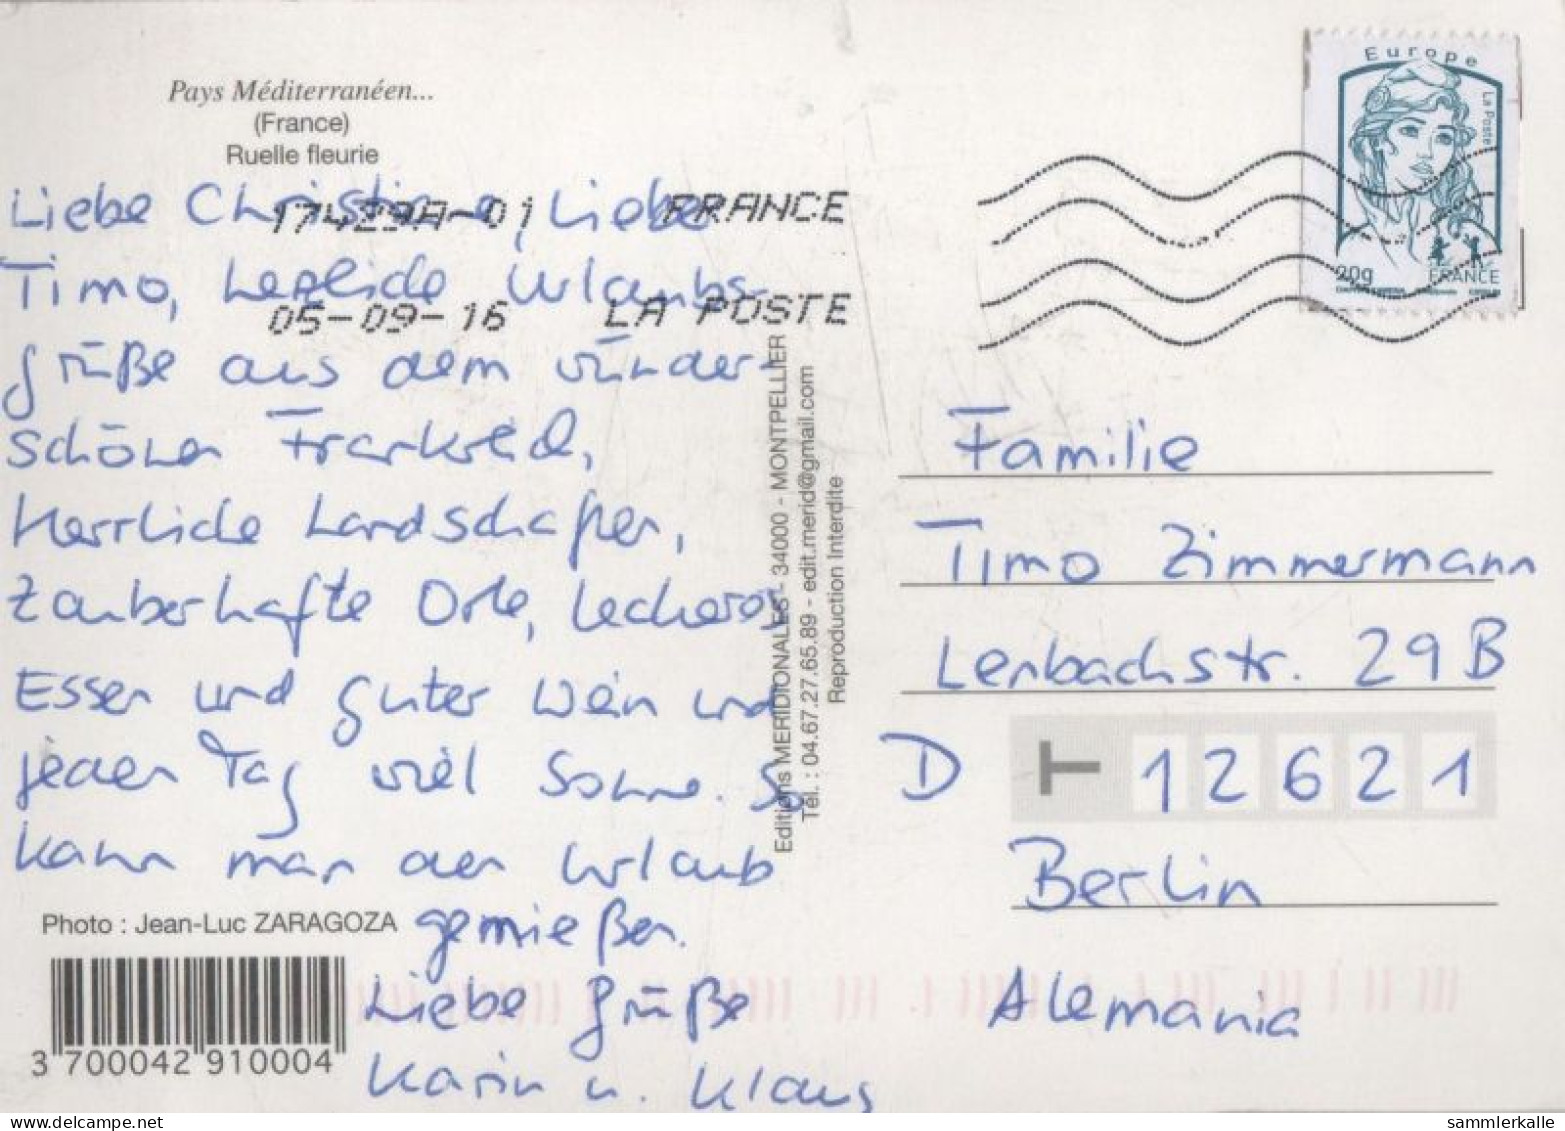 Pays Méditerranéen...
(France)
Ruelle fleurie
Liebe Christine, Liebe
Timo, herzliche Urlaubs-
grüße aus dem wunder-
schönen Frankreich,
Herrliche Landschaften,
zauberhafte Orte, leckeres
Essen und guter Wein und
jeden Tag viel Sonne. So
kann man den Urlaub
genießen.
Liebe Grüße
Karin u. Klaus
Photo : Jean-Luc ZARAGOZA
3 700042 910004
17429A-01 FRANCE
05-09-16 LA POSTE
Editions MERIDIONALES - 34000 - MONTPELLIER
Tél. : 04.67.27.65.89 - edit.merid@gmail.com
Reproduction Interdite
Europe
La Poste
20g
FRANCE
Familie
Timo Zimmermann
Lenbachstr. 29 B
D T 12621
Berlin
Alemania
sammlerkalle